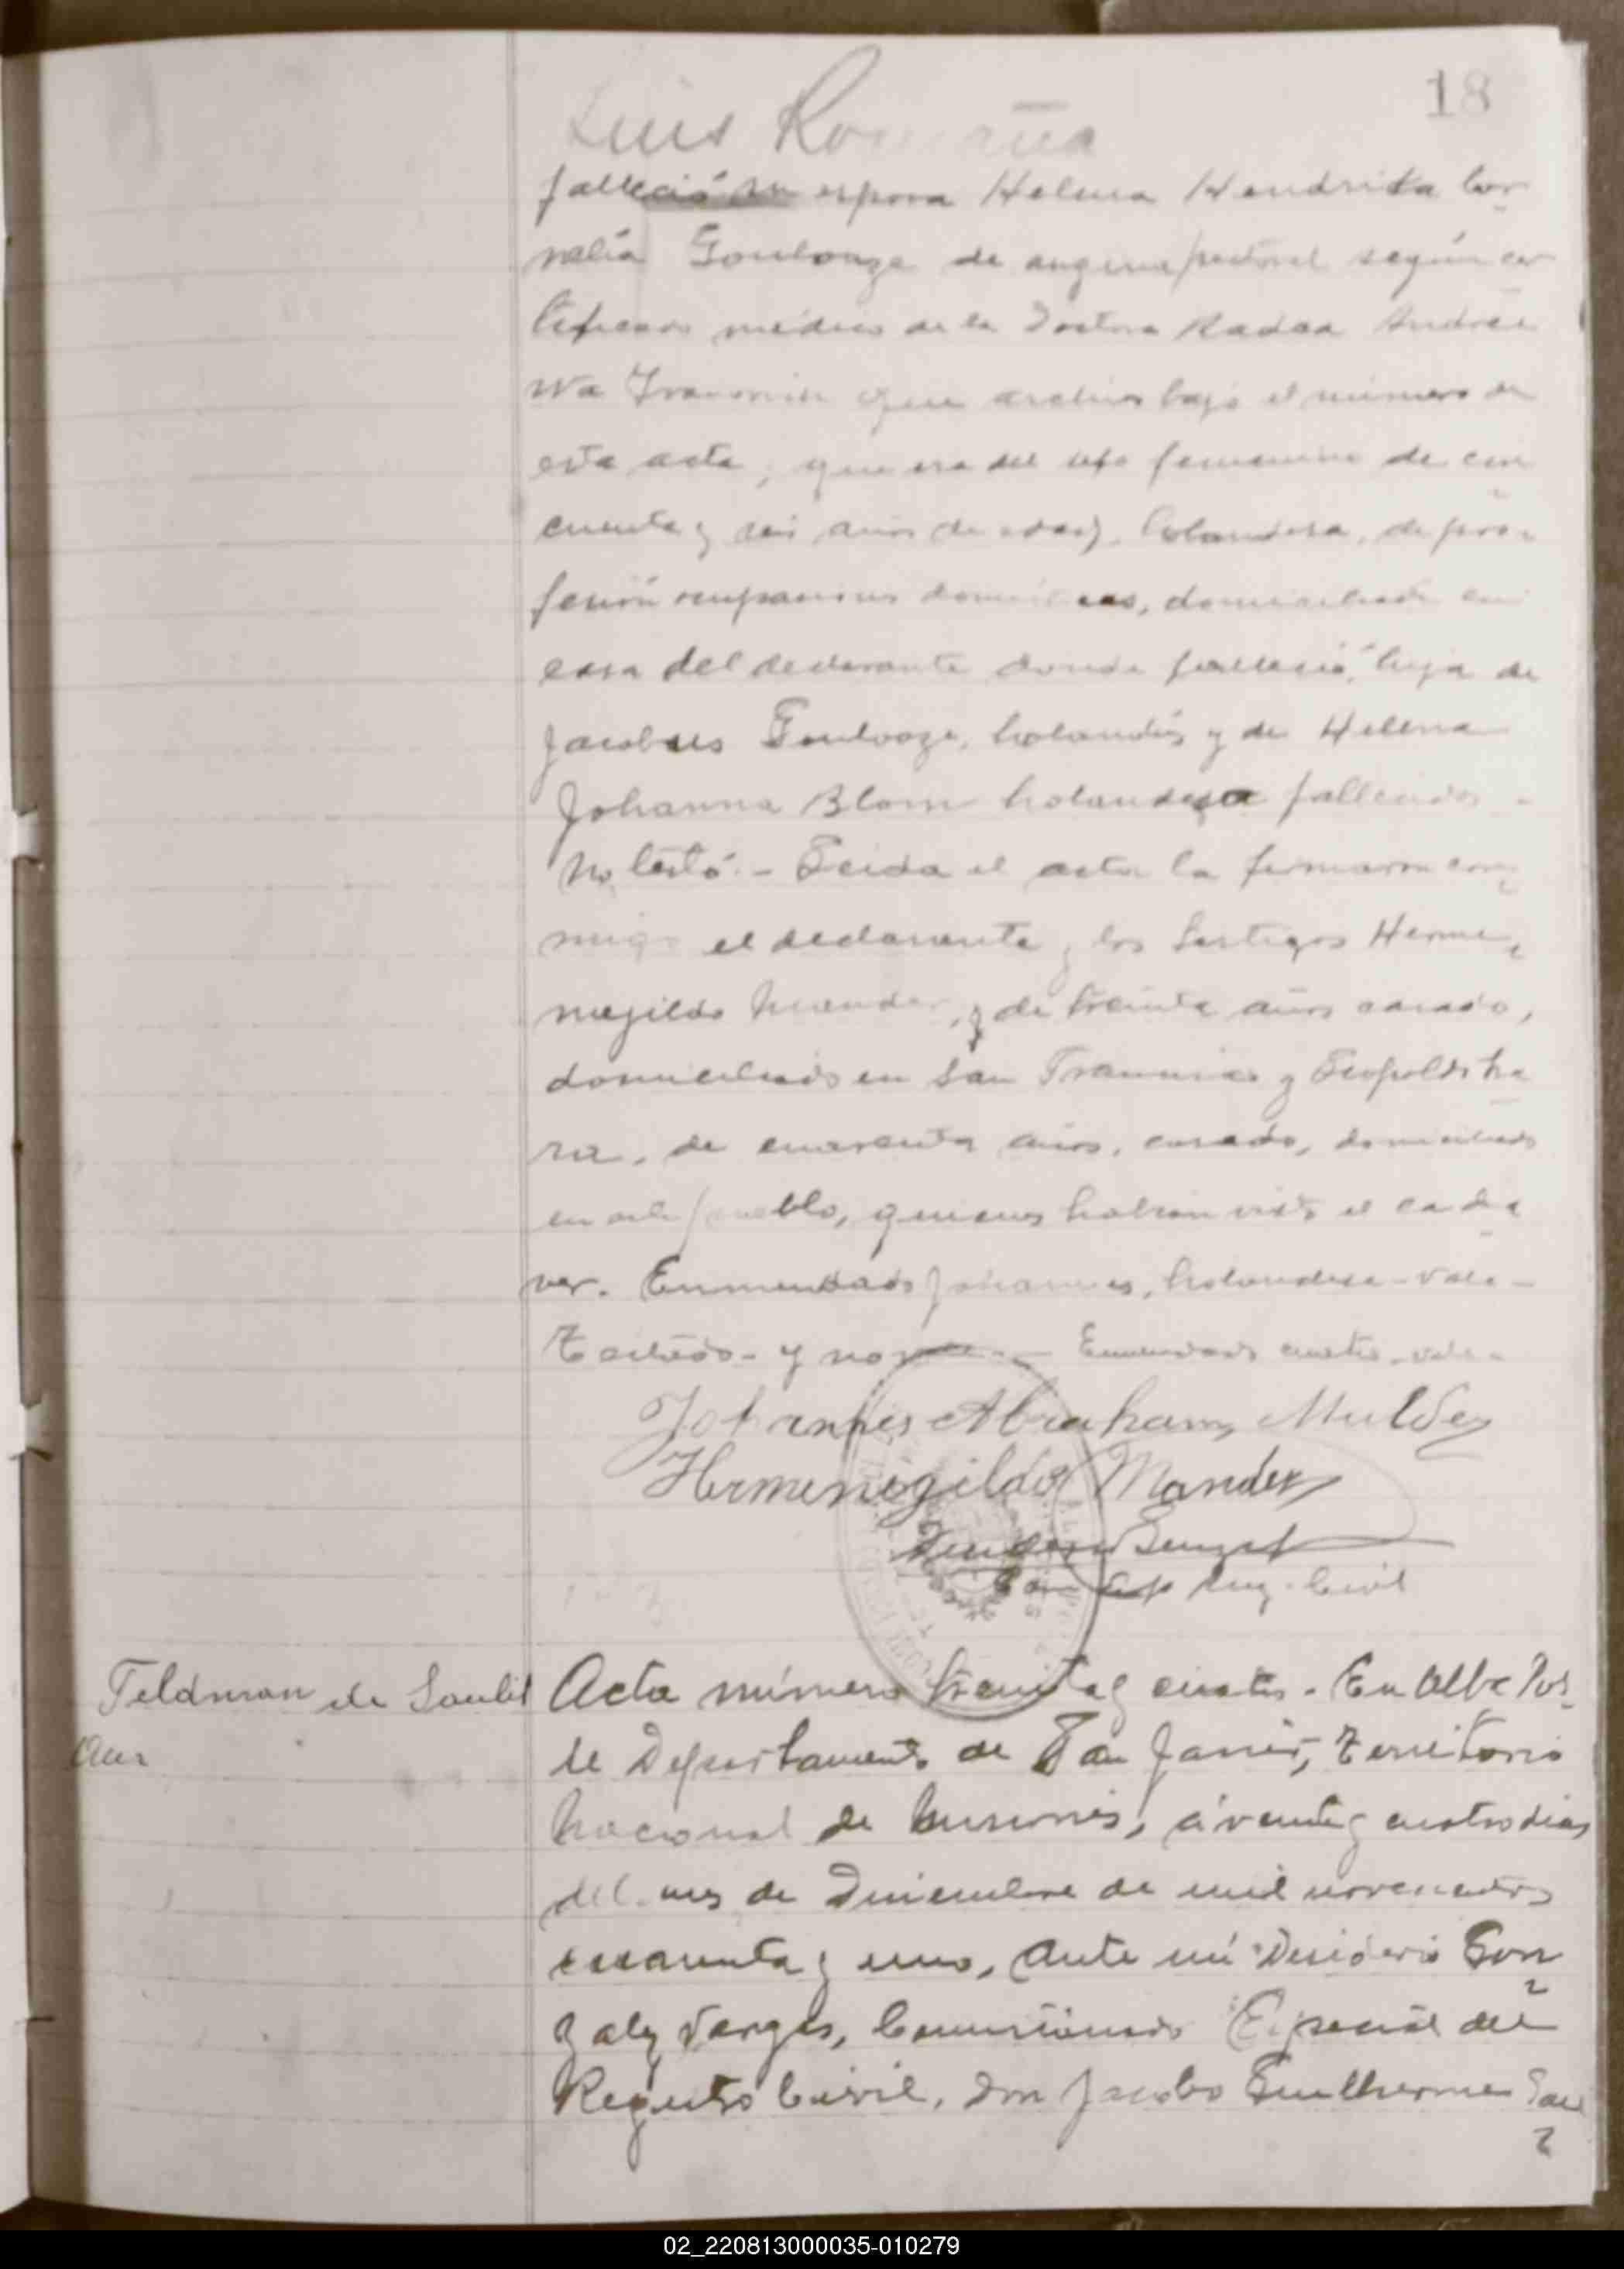 18
Luis Romaña
falleció su esposa Helena Hendrika Cor
nelia Goulooze de angina pectoral según cer
tificado médico de la Doctora Nadea Andree
wa que archivo bajo el número de
esta acta, que era del sexo femenino de cin
cuenta y seis años de edad, holandesa, de pro
fesión ocupaciones domésticas, domiciliada en
casa del declarante donde falleció, hija de
Jacobus Goulooze, holandés y de Helena
Johanna Blom holandesa fallecidos -
No testó. - Leida el acta la firmaron con
migo el declarante y los testigos Herme
negildo Mander, de treinta años casado,
domiciliado en San Francisco y Leopoldo
ra, de cuarenta años, casado, domiciliado
en este pueblo, quienes habian visto el cadá
ver. Enmendado Johannes, holandesa - vale -
Testado - y no vale - Enmendado cuatro - vale -
Johannes Abraham Mulder
Hermenegildo Mander
Reg. Civil
Feldman de Saulit
Ana
Acta número treinta y cuatro. En Alba Pos
se Departamento de San Javier, Territorio
Nacional de Misiones, á veinte y cuatro dias
del mes de Diciembre de mil novecientos
cuarenta y uno, ante mí Desiderio Gon
zalez Vargas, Comisionado Especial del
Registro Civil, don Jacobo Guilherme Sau
02_220813000035-010279